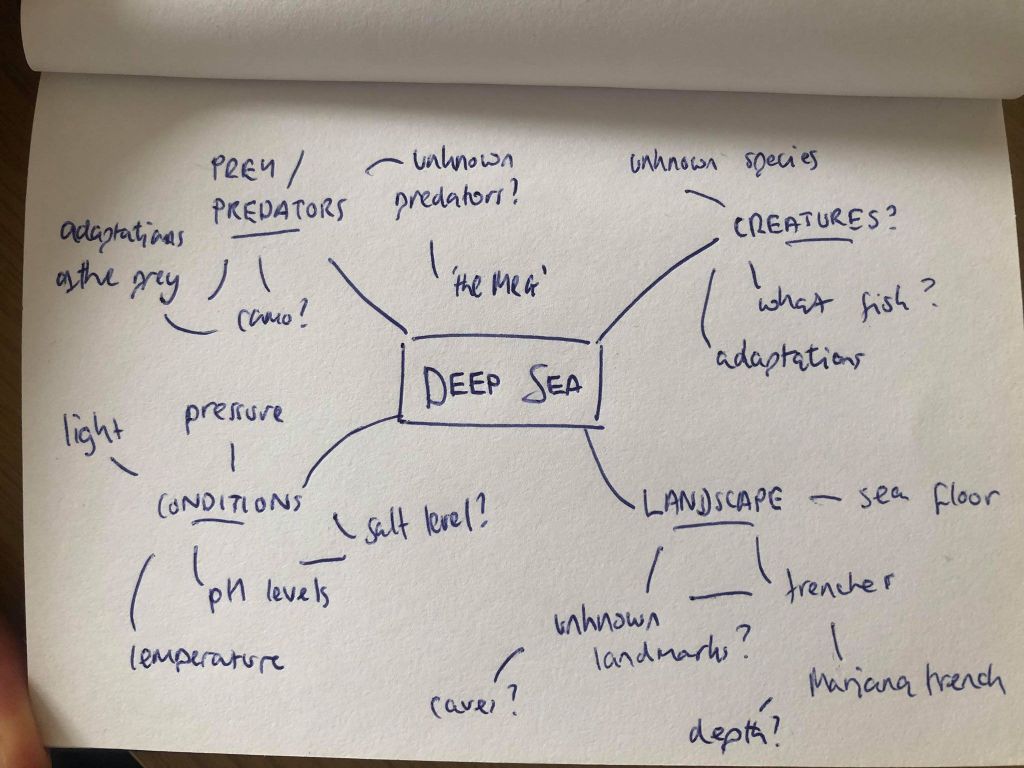 PREY /
PREDATORS
unknown
predators?
'the MEG'
adaptations
of the prey
camo?
unknown species
CREATURES?
what fish?
adaptations
DEEP SEA
light
pressure
CONDITIONS
salt level?
pH levels
temperature
LANDSCAPE
sea floor
trenches
unknown
landmarks?
caves?
Mariana trench
depth?